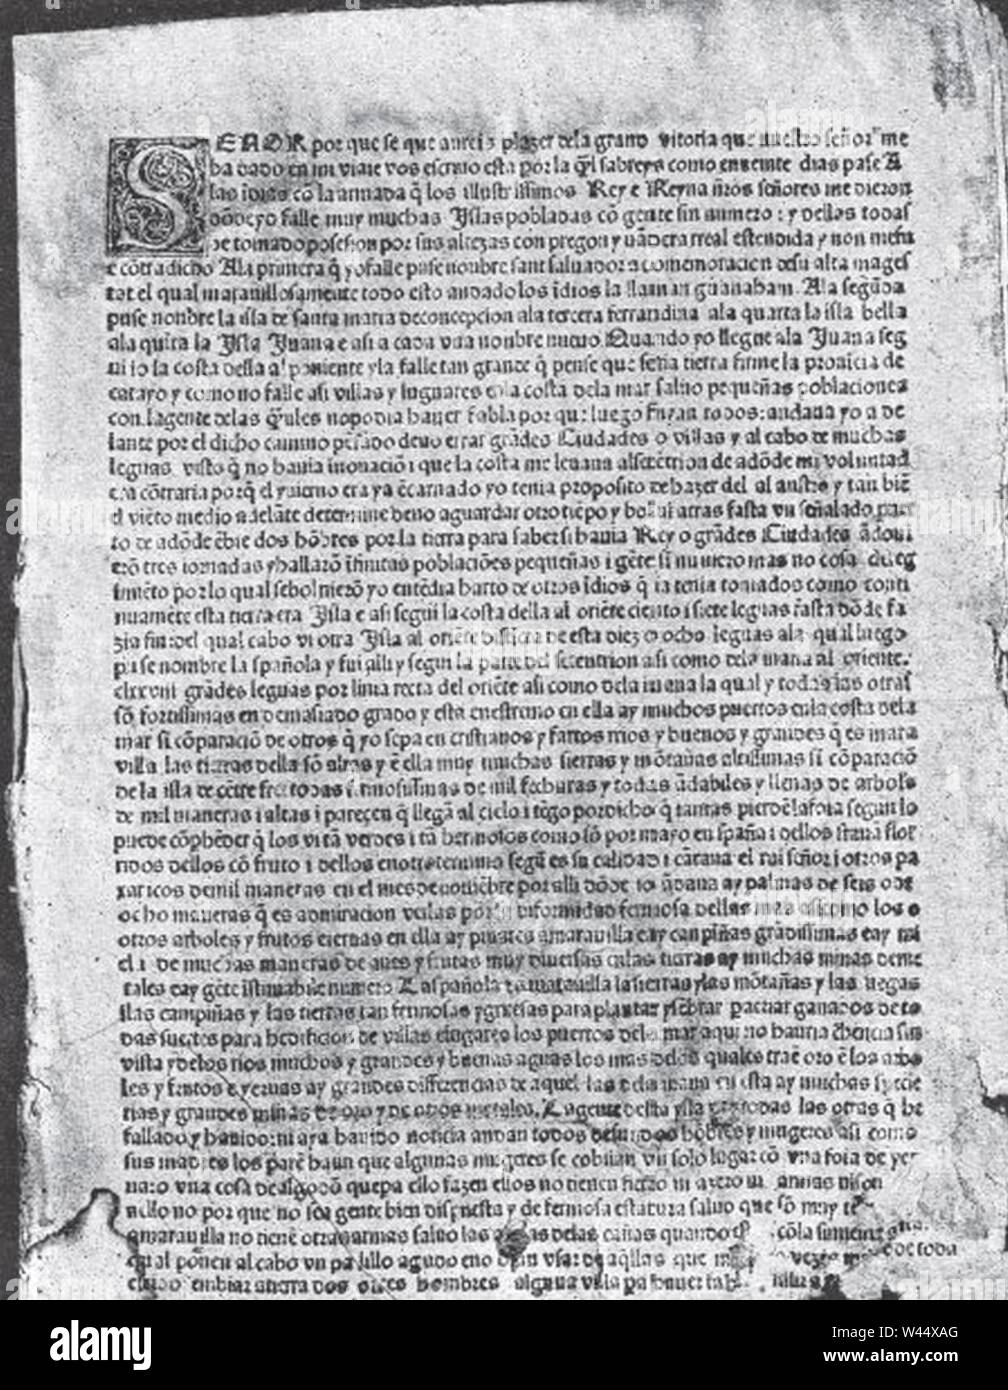 SEÑOR por que se que aureis plazer dela grand vitoria que nuestro señor me
ha dado en mi viaie vos escriuo esta por la q̃l sabreys como enueinte dias pase A
las iñdias cõ la armada q̃ los illustrissimos Rey e Reyna ñros señores me dieron
dõde yo falle muy muchas Yslas pobladas cõ gente sin numero: y dellas todas
he tomado posesion por sus altezas con pregon y uãdera rreal estendida y non mefu
e cõtradicho Ala primera q̃ yofalle puse nonbre sant saluador a comemoracion desu alta mages
tat el qual marauillosamente todo esto andado los ĩdios la llaman guanaham. Ala segũda
puse nonbre la isla de santa maria deconcepcion ala tercera ferrandina ala quarta la isla bella
ala quita la Ysla Juana e asi a cada vna nonbre nueuo. Quando yo llegue ala Juana seg
ui io la costa della al poniente yla falle tan grande q̃ pense que seria tierra firme la prouicia de
catayo y como no falle asi villas y lugares enla costa dela mar saluo pequeñas poblaciones
con lagente delas q̃les nopodia hauer fabla por que luego fuyan todos: andaua yo a de
lante por el dicho camino pẽsado deuo errar grãdes Ciudades o villas y al cabo de muchas
leguas visto q̃ no hauia inouaciõ i que la costa me leuaua alsetẽtrion de adõde mi voluntad
era cõtraria porq̃ el yuierno era ya ẽcarnado yo tenia proposito dehazer del al austro y tan biẽ
el viẽto medio adelãte determine deno aguardar otro tiẽpo y bolui atras fasta vn señalado puer
to de adõde ẽbie dos hõbres por la tierra para saber si hauia Rey o grãdes Ciudades ãdoui
erõ tres iornadas yhallarõ ĩfinitas poblaciões pequeñas i gẽte sĩ numero mas no cosa deireg
imiẽto por lo qual sebolnierõ yo entẽdia harto de otros ĩdios q̃ ia tenia tomados como conti
nuamẽte esta tierra era Ysla e asi segui la costa della al oriẽte ciento i siete leguas fasta dõde fa
zia fin: del qual cabo vi otra Ysla al oriẽte distĩcta de esta diez o ocho leguas ala qual luego
puse nombre la spañola y fui alli y segui la parte del setentrion asi como dela iuana al oriente.
clxxviii grãdes leguas por linia recta del oriẽte asi como dela iuana la qual y todas las otras
sõ fortissimas en demasiado grado y esta enestremo en ella ay muchos puertos enla costa dela
mar sĩ cõparaciõ de otros q̃ yo sepa en cristianos y fartos rrios y buenos y grandes q̃ es mara
villa las tierras della sõ altas y ẽ ella muy muchas sierras y mõtañas altissimas sĩ cõparaciõ
de la isla de cẽtre frei todas fermosissimas de mil fechuras y todas ãdabiles y llenas de arboles
de mil maneras i altas i pareçen q̃ llegã al cielo i tẽgo pordicho q̃ iamas pierdẽ lafoia segun lo
puede cõphẽder q̃ los vi tã verdes i tã hermosos como sõ por mayo en spaña i dellos stauã flor
ridos dellos cõ fruto i dellos enotrotermino segũ es su calidad i cãtaua el rui señor i otros pa
xaricos demil maneras en el mes denouiẽbre por alli dõde io ãdaua ay palmas de seis ode
ocho maneras q̃ es admiracion verlas por la diformidad fermosa dellas mas asicomo los o
otros arboles y frutos eieruas en ella ay pinares amarauilla eay canpiñas grãdissimas eay mi
el i de muchas maneras de aues y frutas muy diuersas enlas tierras ay muchas minas deme
tales eay gẽte ĩstimabile numero La spañola es marauilla lasierras ylas mõtañas y las uegas
ilas campiñas y las tierras tan fermosas ygruesas para plantar ysẽbrar pacriar ganados deto
das suertes para hedificios de villas elugares los puertos dela mar aqui no hauria chrencia sin
vista ydelos rios muchos y grandes y buenas aguas los mas delos quales traẽ oro ẽ los arbo
les y frutos e yeruas ay grandes differencias de aquellas dela iuana en esta ay muchas specie
rias y grandes minas de oro y de otros metales. La gente desta ysla y de todas las otras q̃ he
fallado y hauido: ni aya hauido noticia andan todos desnudos hõbres y mugeres asi como
sus madres los parẽ haun que algunas mugeres se cobijan vn solo lugar cõ vna foia de yer
ua: o vna cosa de algodõ quepa ello fazen ellos no tienen fierro ni azero ni armas nison
nello no por que no sea gente bien dispuesta y de fermosa estatura saluo que sõ muy te
amarauilla no tienẽ otras armas saluo las a as delas cañas quando est cõla simiente
qual põnen al cabo vn palillo agudo eno osan vsar de aq̃llas que m vezes
eacido embiar atierra dos otres hombres alguna villa pa hauer fabl
alamy
Image ID: W44XAG
www.alamy.com